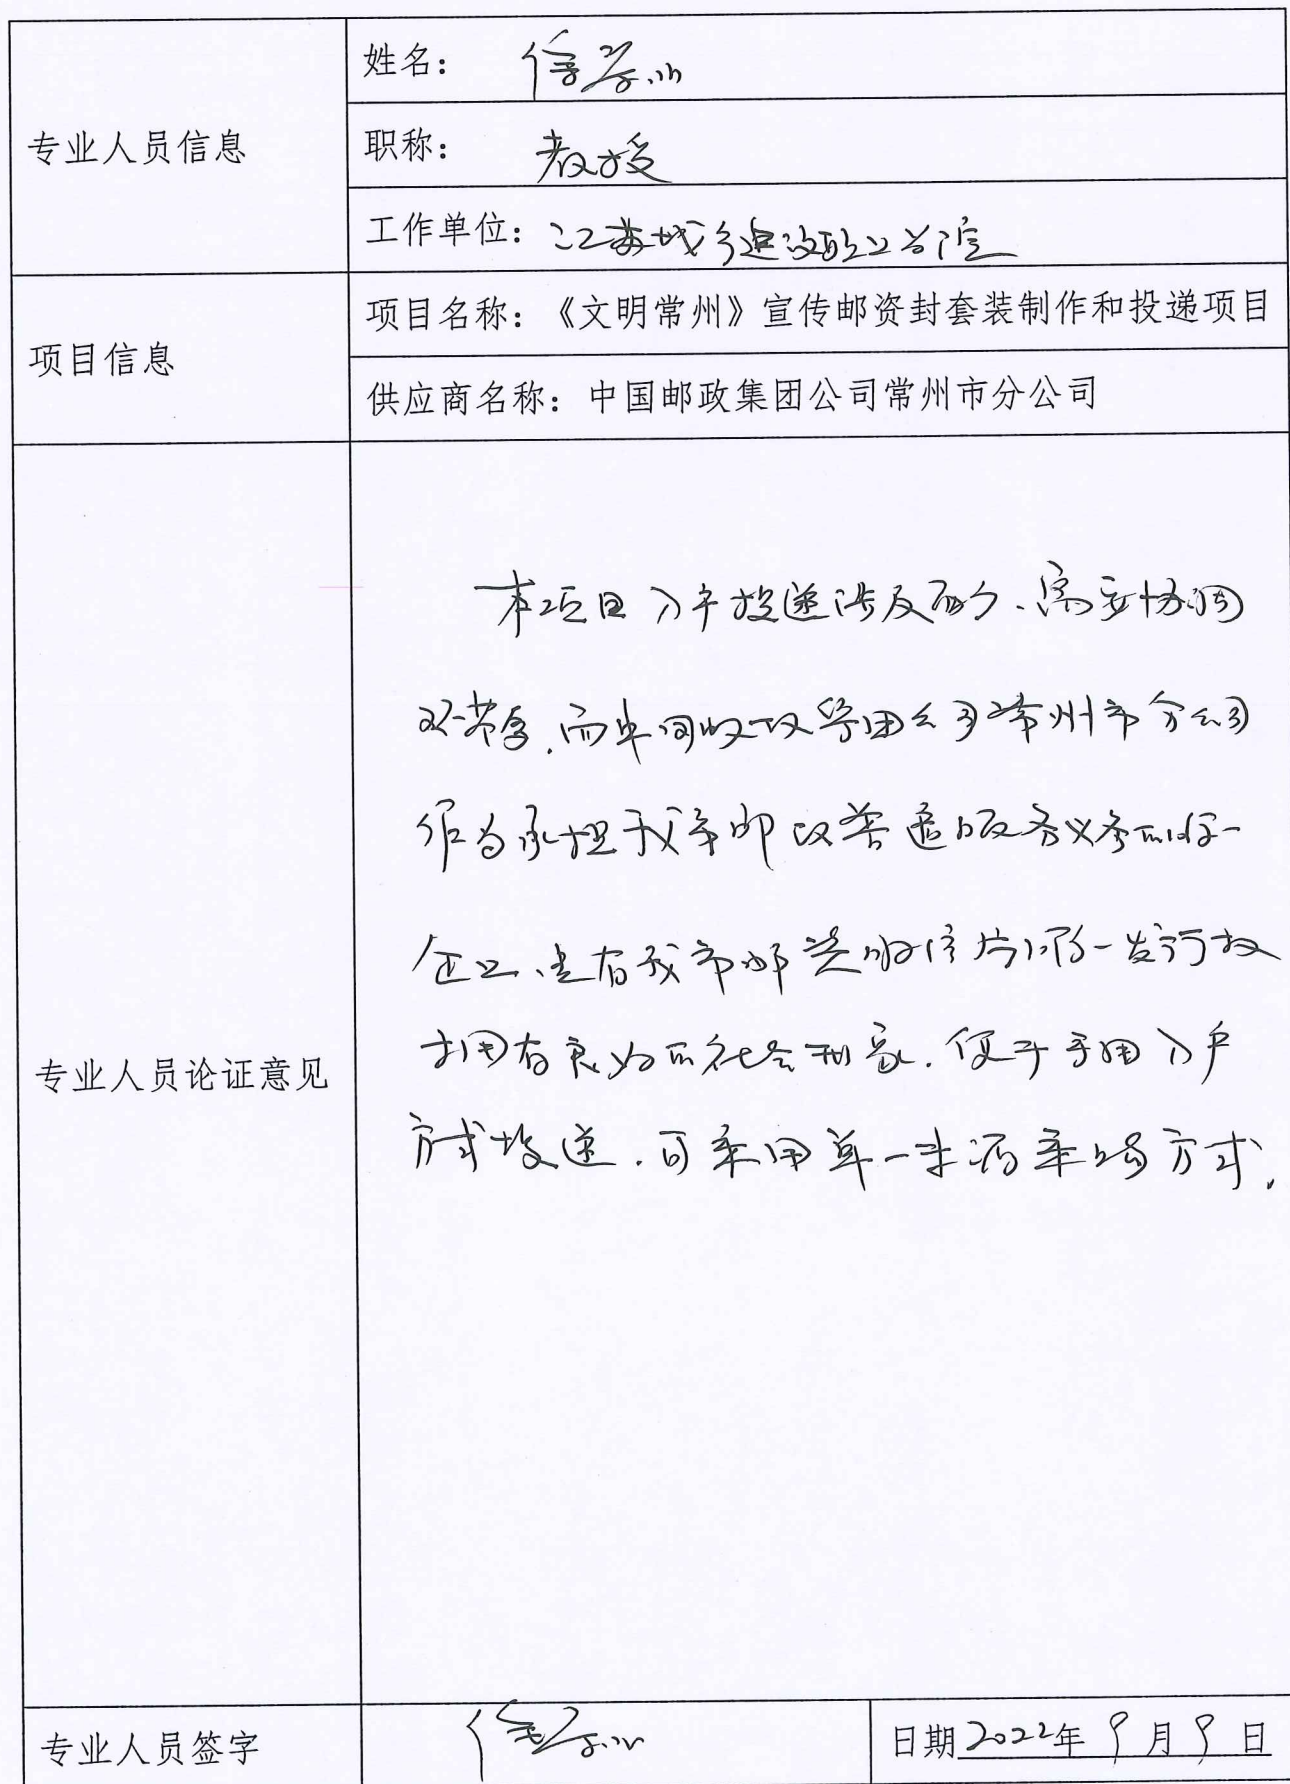 专业人员信息
姓名：
职称： 教授
工作单位：江苏城乡建设职业学院
项目信息
项目名称：《文明常州》宣传邮资封套装制作和投递项目
供应商名称：中国邮政集团公司常州市分公司
专业人员论证意见
本项目入户投递涉及面多、需要协调
环节多，而中国邮政集团公司常州市分公司
作为承担我市邮政普遍服务义务的唯一
企业，具有我市邮资明信片唯一发行权
拥有良好的社会形象，便于采用入户
方式投递，可采用单一来源采购方式。
专业人员签字
日期2022年9月9日